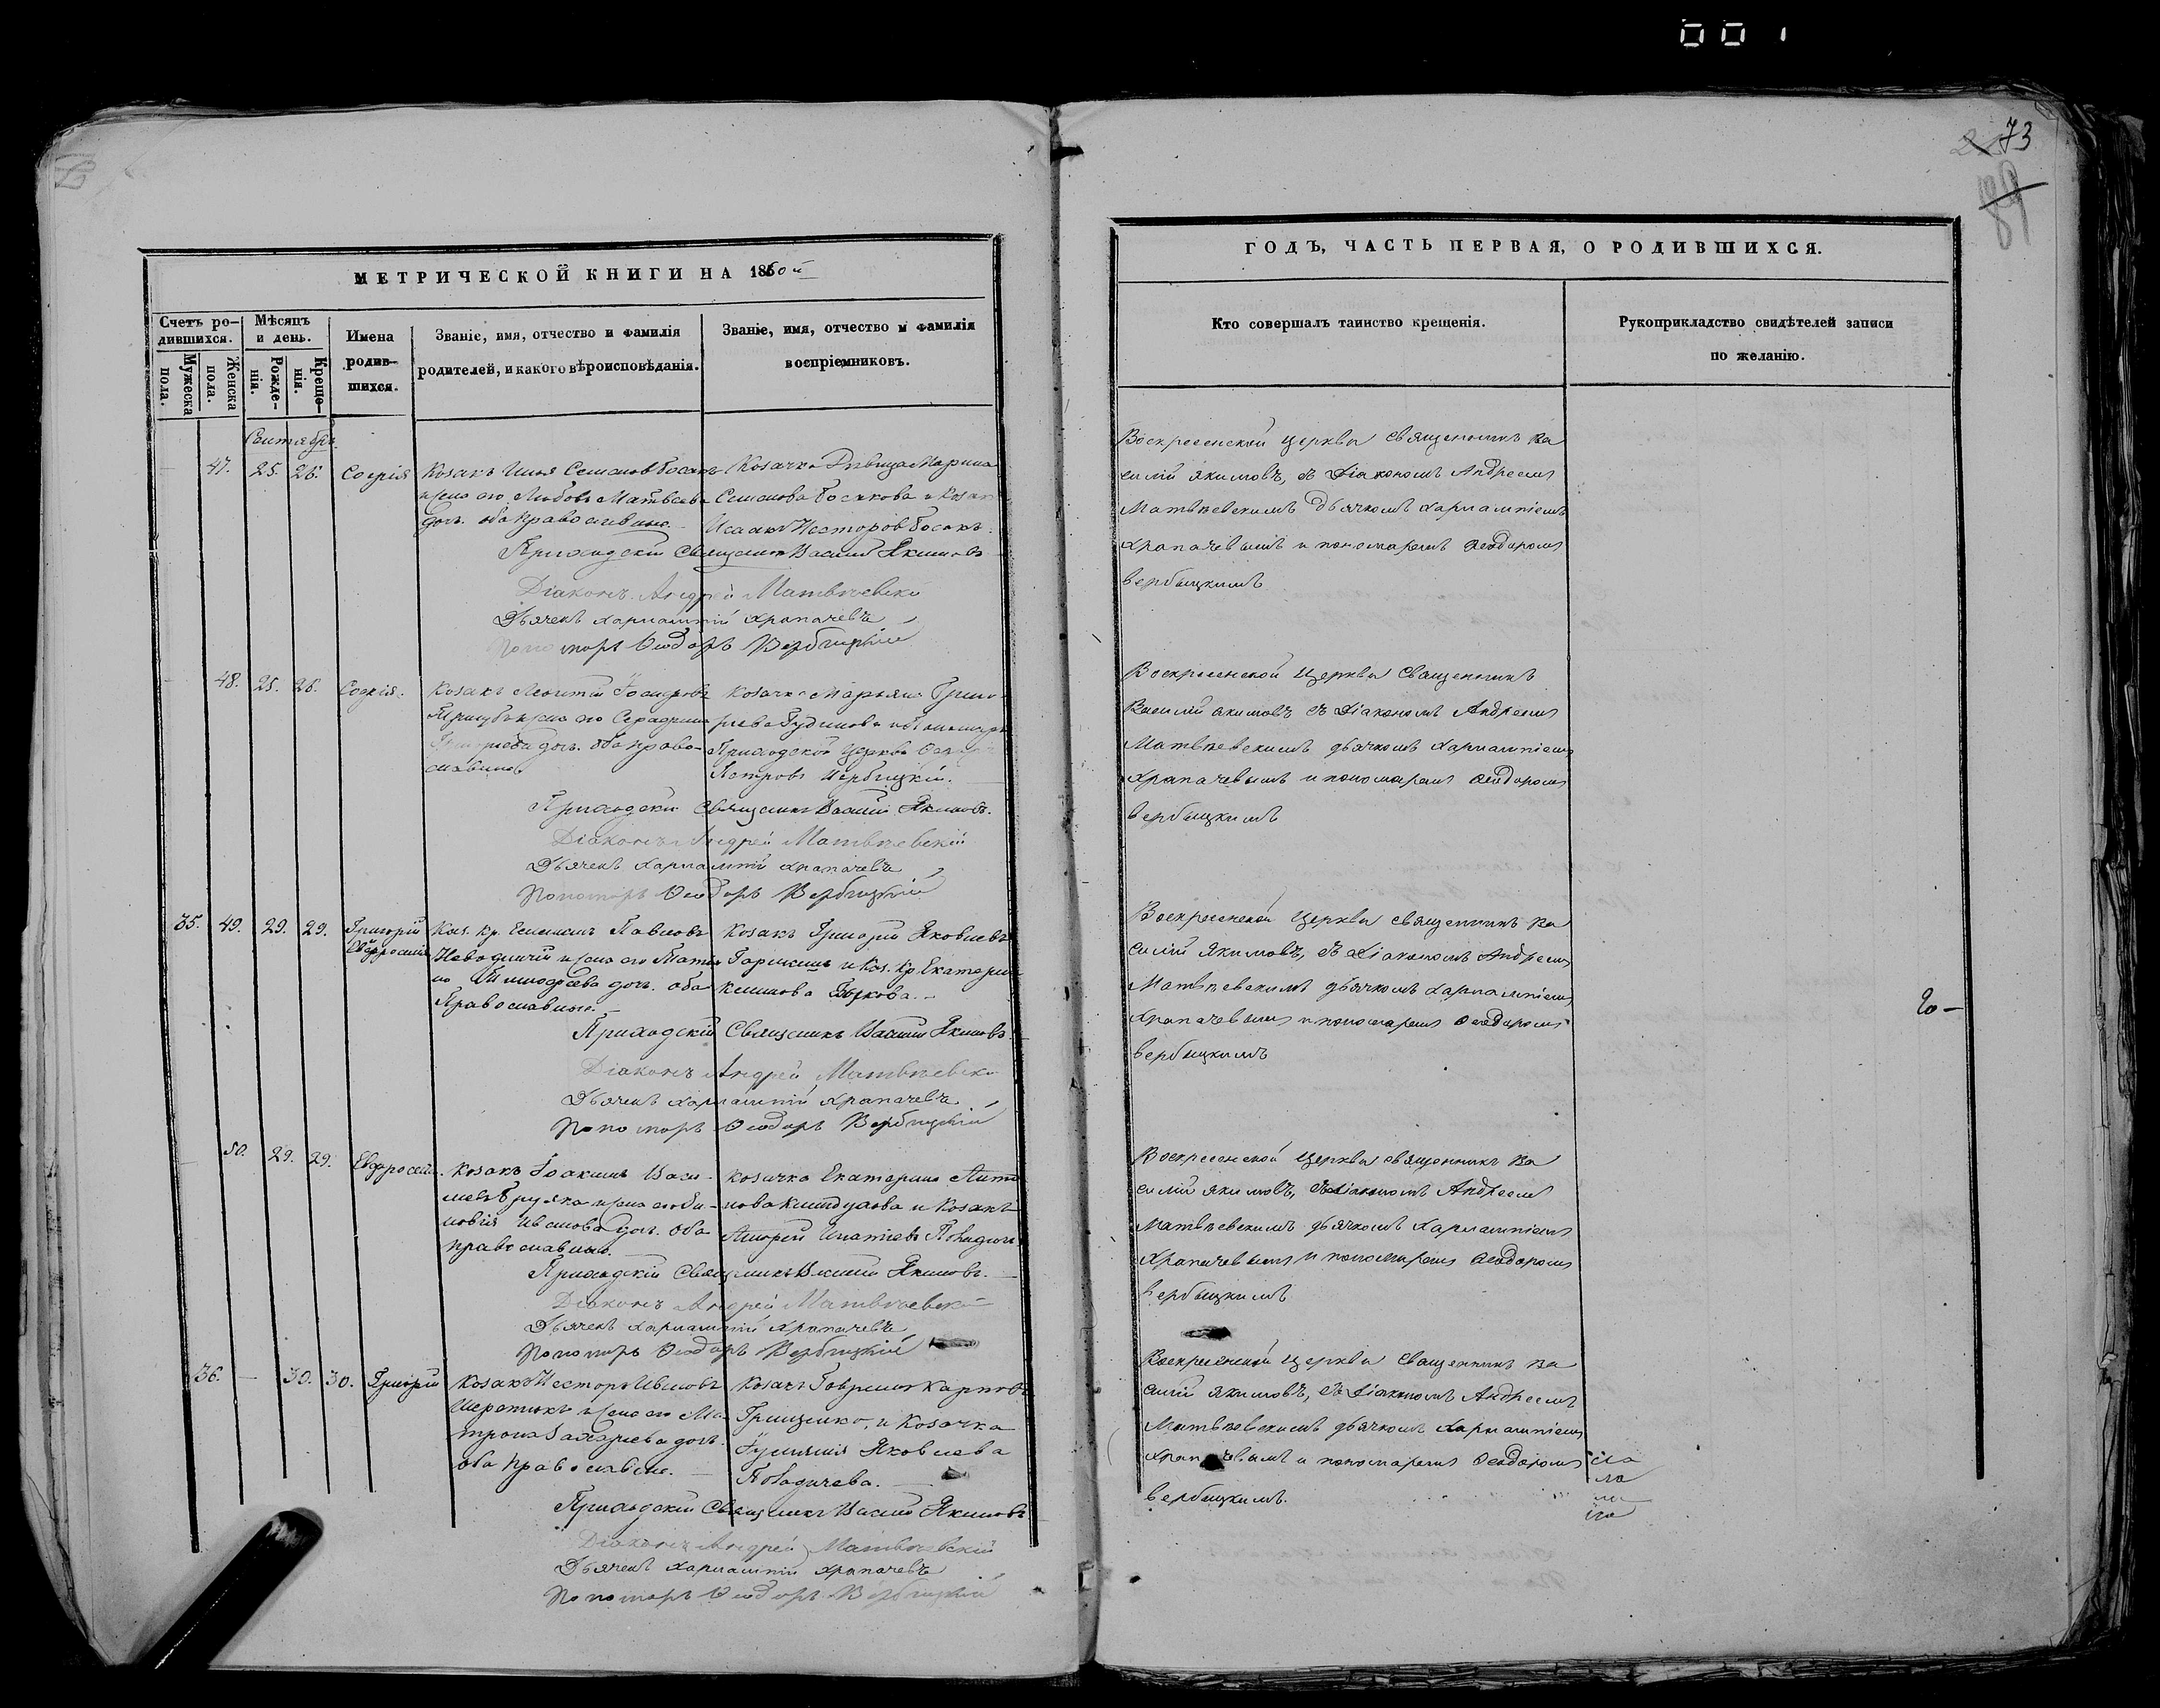 001
73
89
МЕТРИЧЕСКОЙ КНИГИ НА 1860й
Счетъ ро-
дившихся.
Мужеска
пола.
Женска
пола.
Мѣсяцъ
и день.
Рожде-
нія.
Креще-
нія.
Имена
родив-
шихся.
Званіе, имя, отчество и фамилія
родителей, и какого вѣроисповѣданія.
Званіе, имя, отчество и фамилія
воспріемниковъ.
47. 25. 26. Софія
Козакъ Илья Семеновъ Босакъ
жена его Любовь Матвѣева
доч. оба православные.
Козачка Дѣвица Марина
Семенова Босакова и Козакъ
Исаакъ Несторовъ Босакъ.
Приходскій Священникъ Василій Якимовъ
Діаконъ Андрей Матвѣевскій
Дьячекъ Харлампій Храпачевъ
Пономарь Ѳеодоръ Вербицкій
48. 25. 26. Софія.
Козакъ Леонтій
жена его
доч. оба право-
славные
Козачка Марьяна Григо-
рьева и пономарь
Приходской Церкви
Петровъ Вербицкій.
Приходскій Священникъ Василій Якимовъ.
Діаконъ Андрей Матвѣевскій
Дьячекъ Харлампій Храпачевъ
Пономарь Ѳеодоръ Вербицкій
35. 49. 29. 29. Григорій
Евфросинія
Каз. Кр. Павловъ
и жена его
Тимофеева доч. оба
Православные.
Козакъ Григорій Яковлевъ
и Каз. Кр. Екатерина
Приходскій Священникъ Василій Якимовъ.
Діаконъ Андрей Матвѣевскій
Дьячекъ Харлампій Храпачевъ
Пономарь Ѳеодоръ Вербицкій
50. 29. 29. Евфросинія.
Козакъ Іоакимъ Васи-
жена его
Иванова доч. оба
православные.
Козачка Екатерина
и Козакъ
Андрей Игнатіевъ
Приходскій Священникъ Василій Якимовъ.
Діаконъ Андрей Матвѣевскій
Дьячекъ Харлампій Храпачевъ
Пономарь Ѳеодоръ Вербицкій
36. — 30. 30. Григорій
Козакъ Несторъ Ивановъ
жена его Ма-
трона Захаріева доч.
оба православные.
Козакъ Гавріилъ Карповъ
Грищенко, и Козачка
Яковлева
Приходскій Священникъ Василій Якимовъ
Діаконъ Андрей Матвѣевскій
Дьячекъ Харлампій Храпачевъ
Пономарь Ѳеодоръ Вербицкій
ГОДЪ, ЧАСТЬ ПЕРВАЯ, О РОДИВШИХСЯ.
Кто совершалъ таинство крещенія.
Рукоприкладство свидѣтелей записи
по желанію.
Воскресенской Церкви священникъ Ва
силій Якимовъ, съ Діакономъ Андреемъ
Матвѣевскимъ Дьячкомъ Харлампіемъ
Храпачевымъ и пономаремъ Ѳеодоромъ
Вербицкимъ
Воскресенской Церкви Священникъ
Василій Якимовъ съ Діакономъ Андреемъ
Матвѣевскимъ дьячкомъ Харлампіемъ
Храпачевымъ и пономаремъ Ѳеодоромъ
Вербицкимъ
Воскресенской Церкви священникъ Ва
силій Якимовъ, съ Діакономъ Андреемъ
Матвѣевскимъ дьячкомъ Харлампіемъ
Храпачевымъ и пономаремъ Ѳеодоромъ
Вербицкимъ
Воскресенской Церкви священникъ Ва
силій Якимовъ, съ Діакономъ Андреемъ
Матвѣевскимъ дьячкомъ Харлампіемъ
Храпачевымъ и пономаремъ Ѳеодоромъ
Вербицкимъ
Воскресенской Церкви Священникъ Ва
силій Якимовъ, съ Діакономъ Андреемъ
Матвѣевскимъ дьячкомъ Харлампіемъ
Храпачевымъ и пономаремъ Ѳеодоромъ
Вербицкимъ.